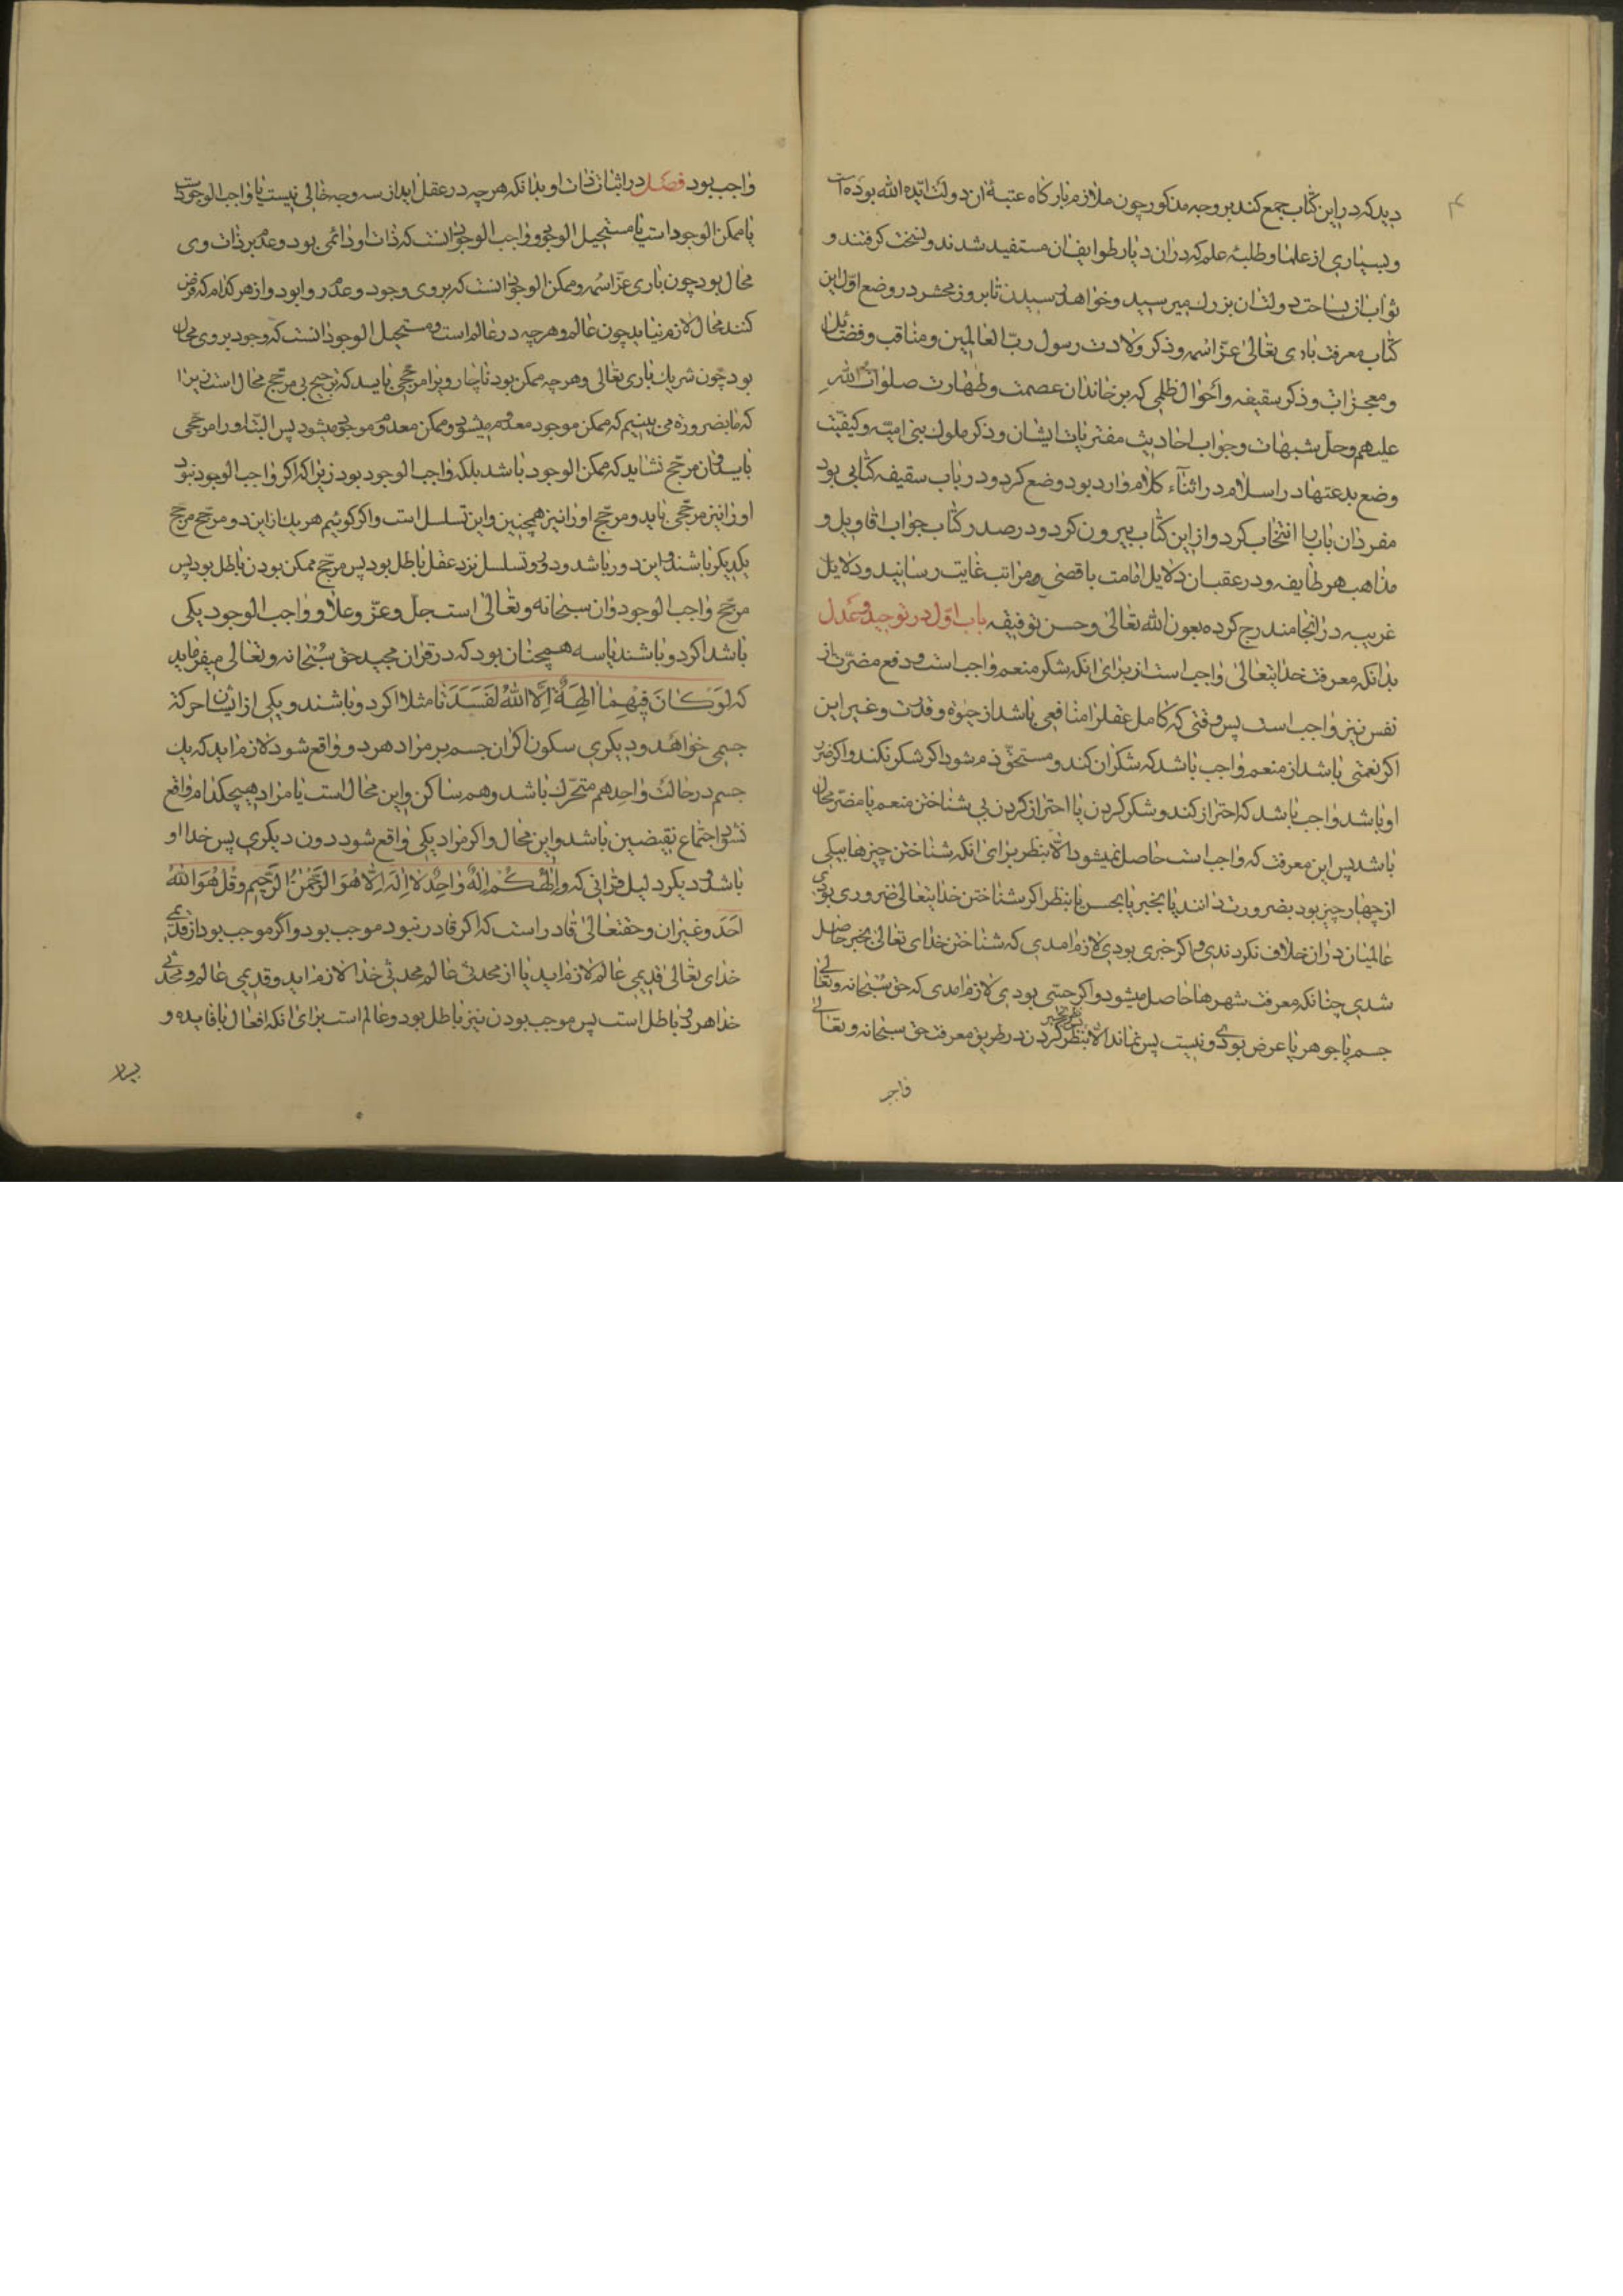 ۴
دید که در این کتاب جمع کند بر وجه مذکور چون ملازم بارکاه عتبهٔ ان دولت ایده الله بوده است
و بسیاری از علما و طلبهٔ علم که در ان دیار طوایف ان مستفید شدند و نسخت کرفتند و
ثواب از ساحت دولت ان بزرك میرسید و خواهد رسیدن تا بروز محشر در وضع اول این
کتاب معرفت باری تعالی عزّ اسمه و ذکر ولادت رسول ربّ العالمین و مناقب و فضایل
و معجزات و ذکر سقیفه و احوال ظلمی که بر خاندان عصمت و طهارت صلوات الله
علیهم و حلّ شبهات و جواب احادیث مفتریات ایشان و ذکر ملوك بنی امیّه و کیفیّت
وضع بدعتها در اسلام در اثنآء کلام وارد بود وضع کرد و در باب سقیفه کتابی بود
مفرد ان باب را انتخاب کرد و از این کتاب بیرون کرد و در صدر کتاب جواب اقاویل و
مذاهب هر طایفه و در عقب ان دلایل امامت باقصی مراتب غایت رسانید و دلایل
غریبه در انجا مندرج کرده بعون الله تعالی و حسن توفیقه باب اوّل در توحید و عدل
بدانکه معرفت خدایتعالی واجب است از برای انکه شکر منعم واجب است و دفع مضرّت از
نفس نیز واجب است پس وقتی که کامل عقل را منافعی باشد از حیوة و قدرت و غیر این
اکر نعمتی باشد از منعم واجب باشد که شکر ان کند و مستحقّ ذم شود اکر شکر نکند و اکر ضرر
او باشد واجب باشد که احتراز کند و شکر کردن یا احتراز کردن بی شناختن منعم یا مضر محال
باشد پس این معرفت که واجب است حاصل نمیشود الّا بنظر برای انکه شناختن چیزها بیکی
از چهار چیز بود بضرورت دانند یا بخبر یا بحس یا بنظر اکر شناختن خدایتعالی ضروری بودی
عالمیان در ان خلاف نکردندی و اکر خبری بودی لازم امدی که شناختن خدای تعالی بخبر حاصل
شدی چنانکه معرفت شهرها حاصل میشود و اکر حسّی بودی لازم امدی که حق سبحانه و تعالی
جسم یا جوهر یا عرض بودی و نیست پس نماند الّا بنظر کردن در طریق معرفت حق سبحانه و تعالی
واجب بود فصل در اثبات ذات او بدانکه هر چه در عقل اید از سه وجه خالی نیست یا واجب الوجود است
یا ممکن الوجود است یا مستحیل الوجود و واجب الوجود انست که ذات او دائمی بود و عدم بر ذات وی
محال بود چون باری عزّ اسمه و ممکن الوجود انست که بر وی وجود و عدم روا بود و از هر کدام که فرض
کنند محال لازم نیاید چون عالم و هر چه در عالم است و مستحیل الوجود انست که وجود بر وی محال
بود چون شریك باری تعالی و هر چه ممکن بود ناچار ویرا مرجّحی باید که ترجیح بی مرجّح محال است زیرا
که ما بضرورة می بینیم که ممکن موجود معدوم میشود و ممکن معدوم موجود میشود پس البتّه او را مرجّحی
باید و ان مرجّح نشاید که ممکن الوجود باشد بلکه واجب الوجود بود زیرا که اکر واجب الوجود نبود
او را نیز مرجّحی باید و مرجّح او را نیز همچنین و این تسلسل است و اکر کوئیم هر یك از این دو مرجّح مرجّح
یکدیکر باشند و این دور باشد و دور و تسلسل نزد عقل باطل بود پس مرجّح ممکن بودن باطل بود پس
مرجّح واجب الوجود و ان سبحانه و تعالی است جلّ و عزّ و علا و واجب الوجود یکی
باشد اکر دو باشند یا سه همچنان بود که در قران مجید حق سبحانه و تعالی میفرماید
که لَوْ كَانَ فِيهِمَا اٰلِهَةٌ اِلَّا اللهُ لَفَسَدَتَا مثلا اکر دو باشند و یکی از ایشان حرکة
جسمی خواهد و دیکری سکون اکر ان جسم بر مراد هر دو واقع شود لازم اید که یك
جسم در حالت واحد هم متحرّك باشد و هم ساکن و این محال است یا مراد هیچکدام واقع
نشود اجتماع نقیضین باشد و این محال و اکر مراد یکی واقع شود دون دیکری پس خدا او
باشد و دیکر دلیل قرانی که وَاِلٰهُكُمْ اِلٰهٌ وَاحِدٌ لَا اِلٰهَ اِلَّا هُوَ الرَّحْمٰنُ الرَّحِيمُ و قُلْ هُوَ اللهُ
اَحَد و غیر ان و حقتعالی قادر است که اکر قادر نبود موجب بود و اکر موجب بود از قدیمی
خدای تعالی قدیمی عالم لازم اید یا از محدثی عالم محدثی خدا لازم اید و قدیمی عالم و محدثی
خدا هر دو باطل است پس موجب بودن نیز باطل بود و عالم است برای انکه افعال بافایده و